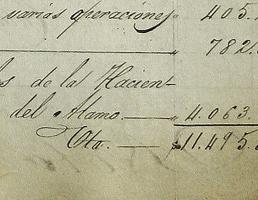 varias operaciones " 405.
" 782.
de la Hacien
del Alamo. — " 4.063.
Cta. — $11.495.